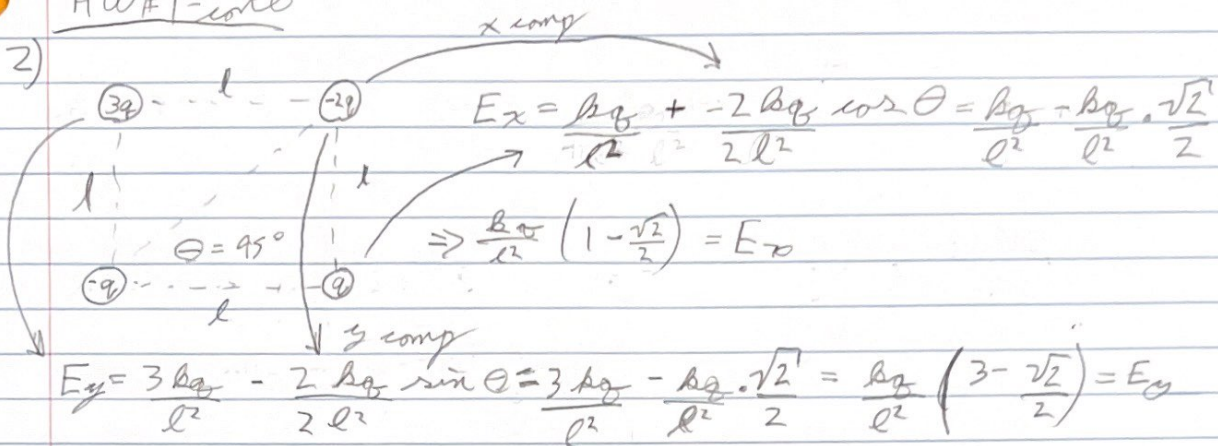 HW#1-cont
x comp
2)
l
3q -2q
E_x = kq/l² + -2kq/2l² cos θ = kq/l² - kq/l² · √2/2
l l
θ = 45°
⇒ kq/l² (1 - √2/2) = E_x
-q q
l
y comp
E_y = 3kq/l² - 2kq/2l² sin θ = 3kq/l² - kq/l² · √2/2 = kq/l² (3 - √2/2) = E_y